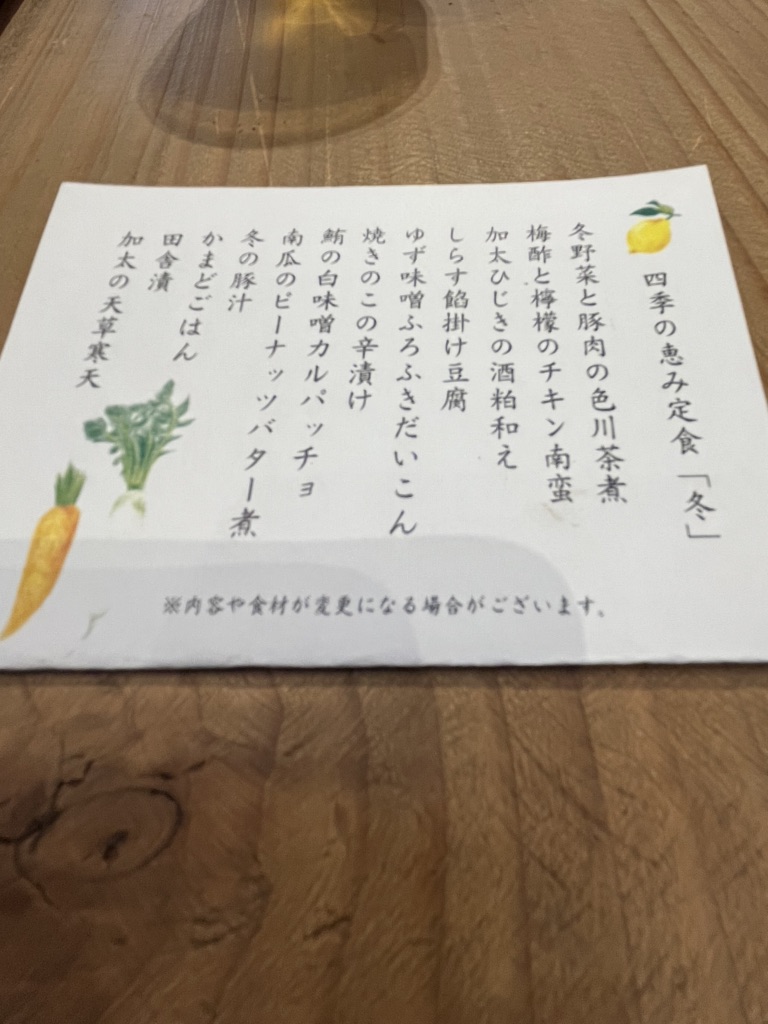 四季の恵み定食「冬」
冬野菜と豚肉の色川茶煮
梅酢と檸檬のチキン南蛮
加太ひじきの酒粕和え
しらす餡掛け豆腐
ゆず味噌ふろふきだいこん
焼きのこの辛漬け
鮪の白味噌カルパッチョ
南瓜のピーナッツバター煮
冬の豚汁
かまどごはん
田舎漬
加太の天草寒天
※内容や食材が変更になる場合がございます。